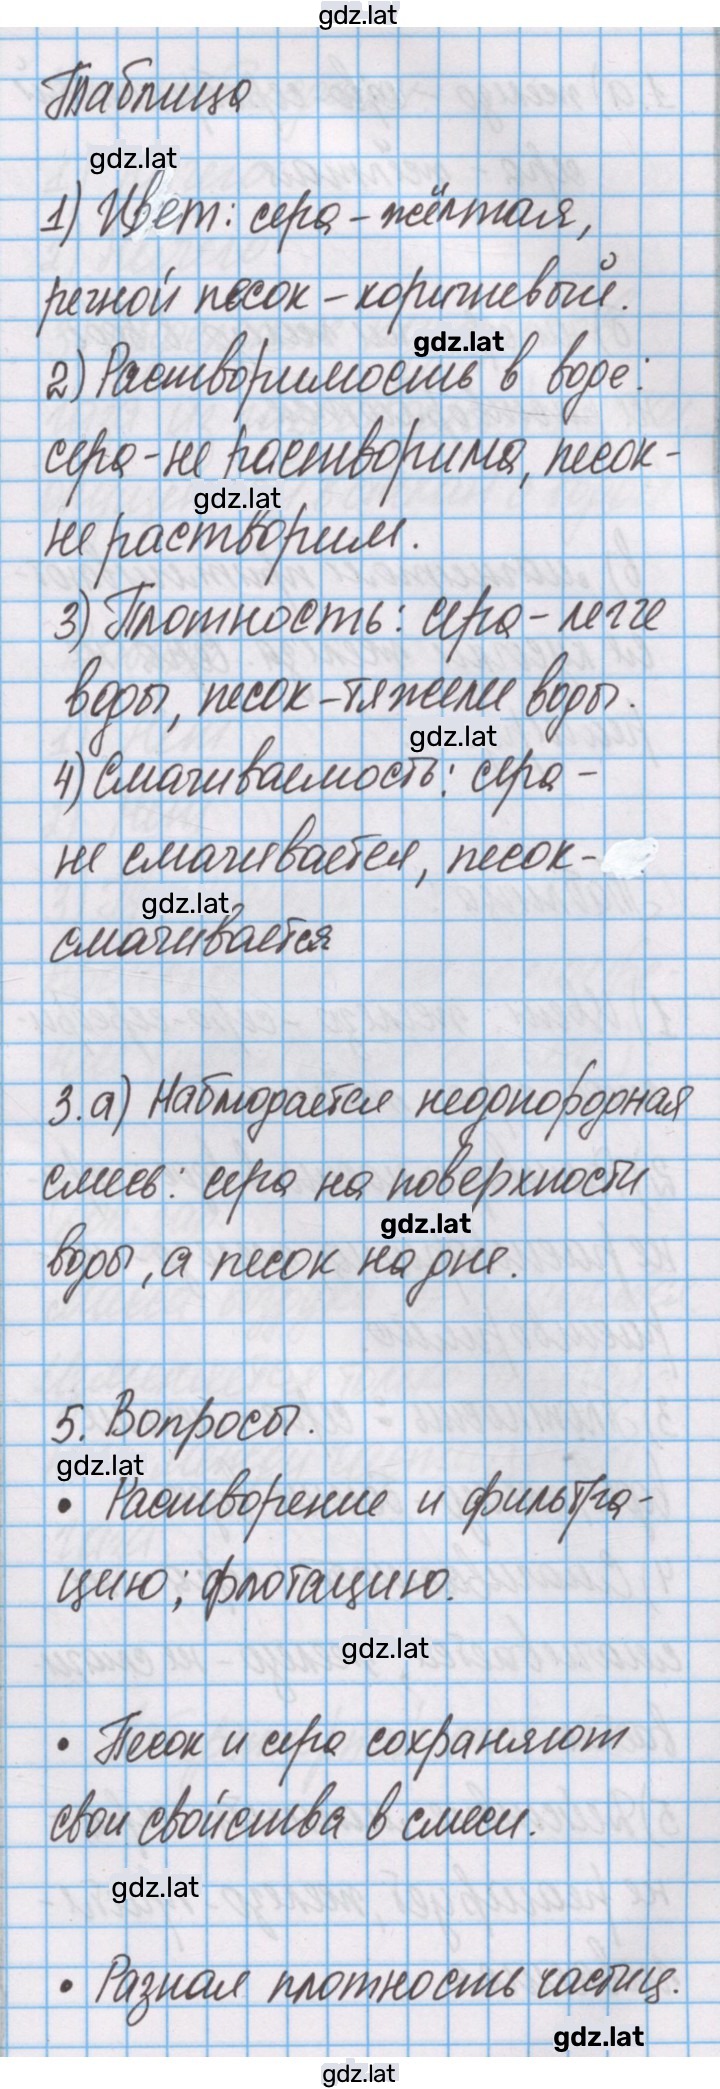 gdz.lat
Таблица
gdz.lat
1) Цвет: сера - жёлтая,
речной песок - коричневый.
gdz.lat
2) Растворимость в воде:
сера - не растворима, песок -
gdz.lat
не растворим.
3) Плотность: сера - легче
воды, песок - тяжелее воды.
gdz.lat
4) Смачиваемость: сера -
не смачивается, песок -
gdz.lat
смачивается
3. а) Наблюдается недонородная
смесь: сера на поверхности
gdz.lat
воды, а песок на дне.
5. Вопросы.
gdz.lat
• Растворение и фильтра-
цию; флотацию.
gdz.lat
• Песок и сера сохраняют
свои свойства в смеси.
gdz.lat
• Разная плотность частиц.
gdz.lat
gdz.lat